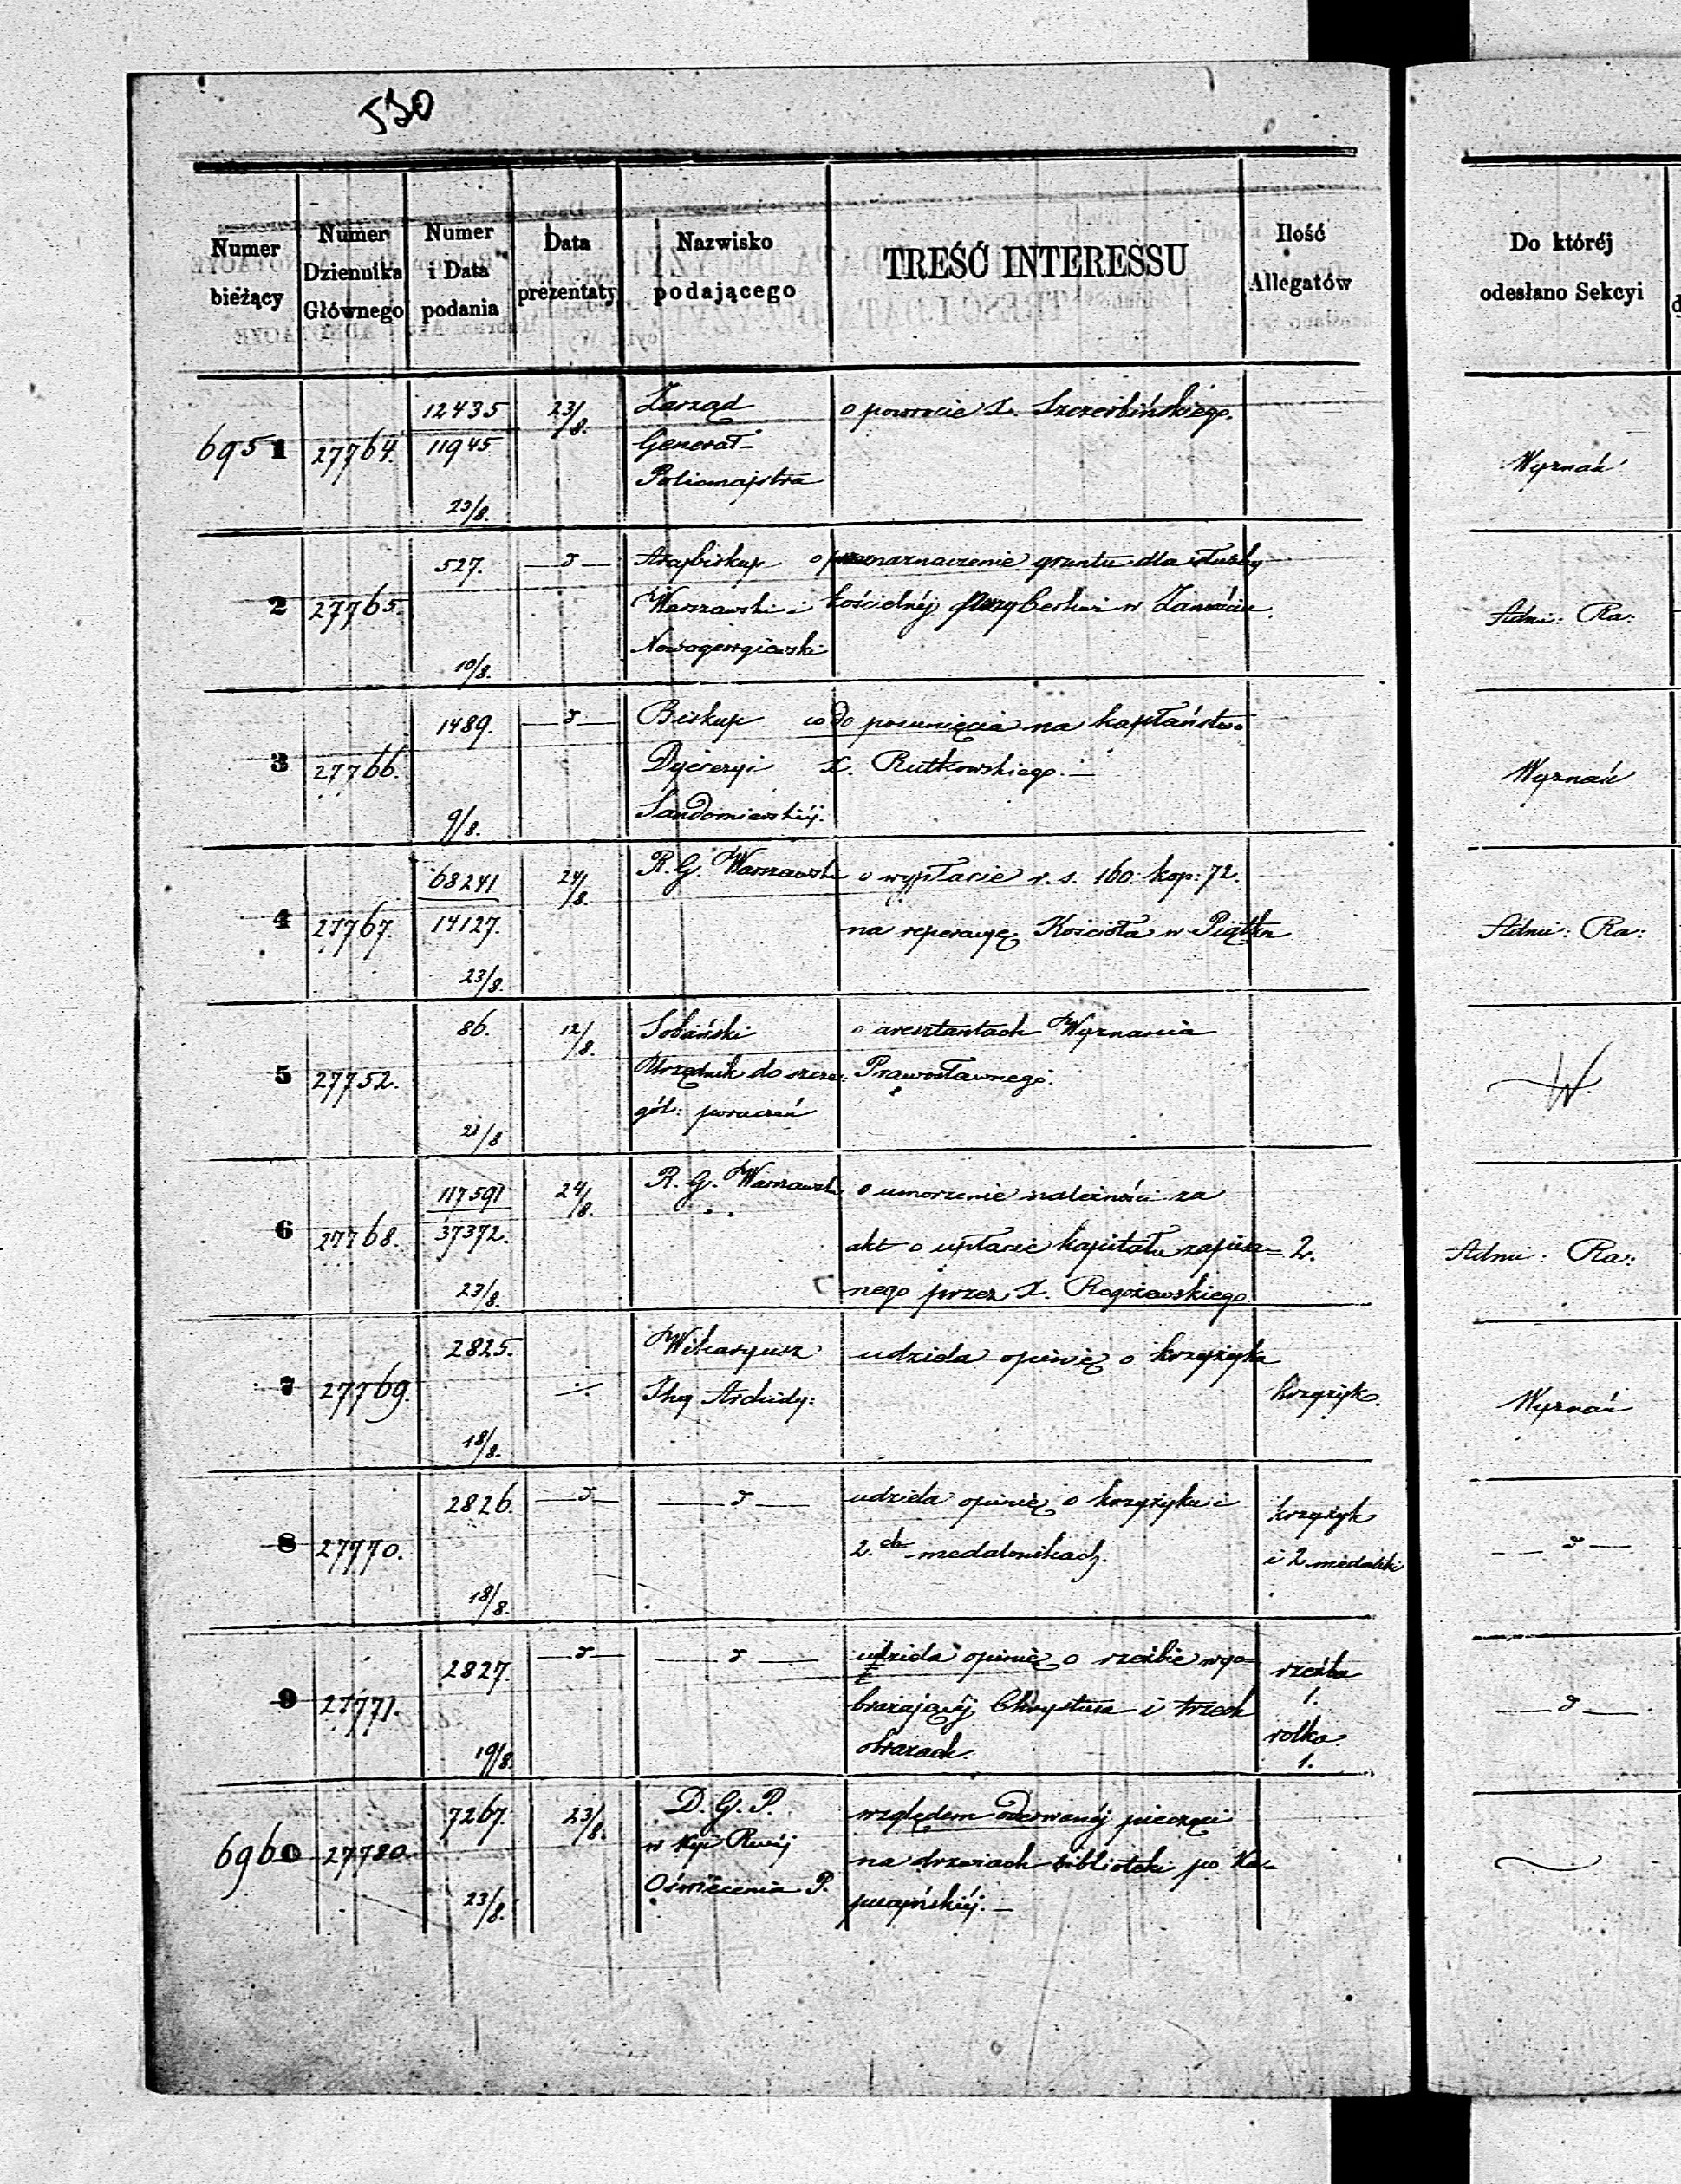 530
Numer
bieżący
Numer
Dziennika
Głównego
Numer
i Data
podania
Data
prezentaty
Nazwisko
podającego
TREŚĆ INTERESSU
Ilość
Allegatów
Do któréj
odesłano Sekcyi
6951 27764 12435 23/8. Zarząd o powrocie X. Szczerbińskiego.
11945 Generał-
Policmajstra
23/8.
Wyznań
2 27765. 527. d Arcybiskup o przeznaczenie gruntu dla służby
Warszawski i kościelnéj przy Cerkwi w Zamościu.
Nowogeorgiewski
10/8.
Admi: Ra:
3 27766. 1489. d Biskup co do posunięcia na kapłaństwo
Dyecezyi X. Rutkowskiego.—
Sandomierskiéj.
9/8.
Wyznań
4 27767. 68241 24/8. R. G. Warszawski o wypłacie r. s. 160. kop: 72.
14127. na reperacyę Kościoła w Piątku
23/8.
Admi: Ra:
5 27752. 86. 12/8. Sobański o aresztantach Wyznania
Urzędnik do szcze: Prawosławnego.
gól: poruczeń
21/8
W.
6 27768. 117591 24/8. R. G. Warszawski o umorzenie należności za
37372. akt o upłacie kapitału zapisa= 2.
23/8. nego przez X. Rogozewskiego.
Admi: Ra:
7 27769. 2825. Wikaryusz udziela opinię o krzyżyku
Thg Archidy: krzyżyk.
18/8.
Wyznań
8 27770. 2826. d d udziela opinię o krzyżyku i krzyżyk
2.ch medalonikach. i 2 medaliki
18/8.
d
9 27771. 2827. d d udziela opinię o rzeźbie wyo= rzeźba
brażającéj Chrystusa i trzech 1.
obrazach. rolka
1.
19/8.
d
6960 27780 7267. 23/8. D. G. P. względem oderwanéj pieczęci
w Kyi Rząj na drzwiach biblioteki po Ka=
Oświecenia P. pucyńskiéj.—
23/8.